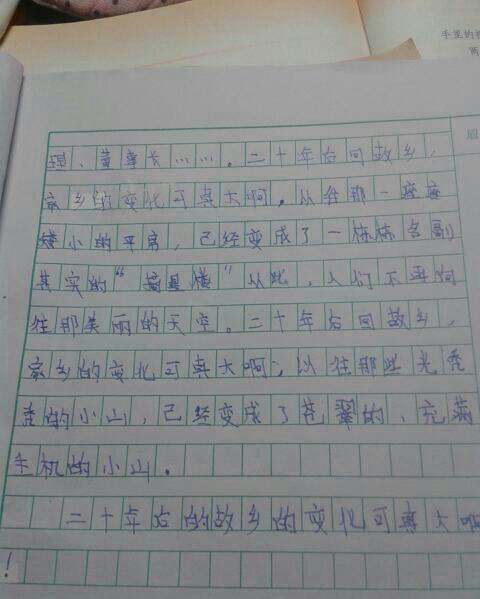 手里的
两
理、董事长……。二十年后回故乡,
家乡的变化可真大啊。以往那一座座
矮小的平房,已经变成了一栋栋名副
其实的“摘星楼”从此,人们不再向
往那美丽的天空。二十年后回故乡,
家乡的变化可真大啊;以往那些光秃
秃的小山,已经变成了苍翼的、充满
生机的小山。
二十年后的故乡的变化可真大啊
!